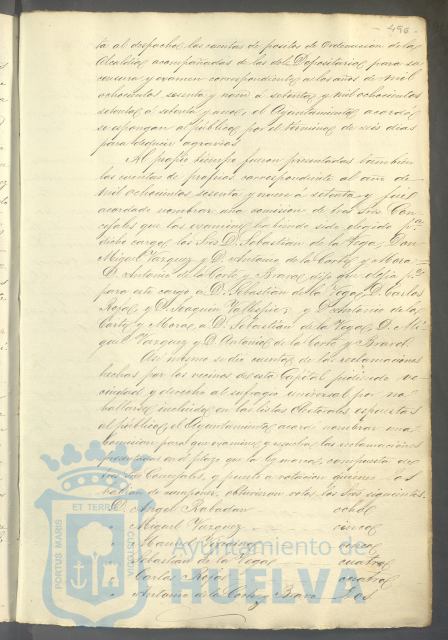 496
ta al despacho, las cuentas de positos de Ordenacion de la
Alcaldia acompañadas de las de la Depositaria, para su
censura y examen correspondientes a los años de mil
ochocientos sesenta y nueve á setenta, y mil ochocientos
setenta á setenta y uno, el Ayuntamiento acordó
se espongan al público por el termino de seis dias
para deducir agravios
Al propio tiempo fueron presentadas tambien
las cuentas de propios correspondiente al año de
mil ochocientos sesenta y nueve á setenta y fué
acordado nombrar una comision de tres Sres Con
cejales que las examine habiendo sido elegido pª
dicho cargo los Sres D. Sebastian de la Vega, Don
Miguel Vazquez y D. Antonio de la Corte y Mora
D. Antonio de la Corte y Bravo, dijo que elejia
para este cargo a D. Sebastian de la Vega, D. Carlos
Rojas y D. Joaquin y D. Antonio de la
Corte y Mora, a D. Sebastian de la Vega, D. Mi
guel Vazquez y D. Antonio de la Corte y Bravo
Asi mismo se dió cuenta de las reclamaciones
hechas por los vecinos de esta Capital pidiendo ve
cindad y derecho de sufragio universal por no
hallarse incluidos en las listas electorales espuestas
al público, el Ayuntamiento acordó nombrar una
Comision para que examine y las reclamaciones
en el plazo que la ley marca, compuesta de
Sres Concejales, y puesto a votacion quienes los
habian de componer, obtuvieron votos los Sres siguientes.
D. Angel Rabadan ocho
" Miguel Vazquez cinco
" Manuel
" Sebastian de la Vega cuatro
" Carlos Rojas cuatro
" Antonio de la Corte y Bravo dos
ET TERRAE
PORTUS MARIS
CUSTODIA
Ayuntamiento de
HUELVA